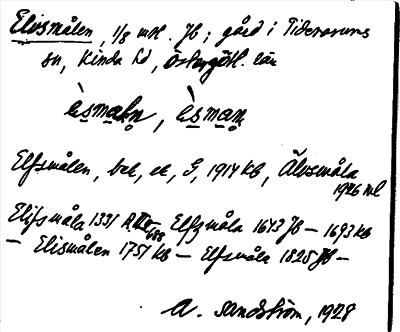 Elvsmålen, 1/8 mtl. Jb; gård i Tidersrums
sn, Kinda hd, Östergötl. län
èsmaḷn, èsman
Elfsmålen, bek, ek, G, 1914 kb, Älvsmåla
1926 ml
Elifsmåla 1331 Elfzmåla 1643 Jb – 1693 kb
– Elismålen 1751 kb – Elfsmåla 1825 Jb –
A. Sandström, 1928